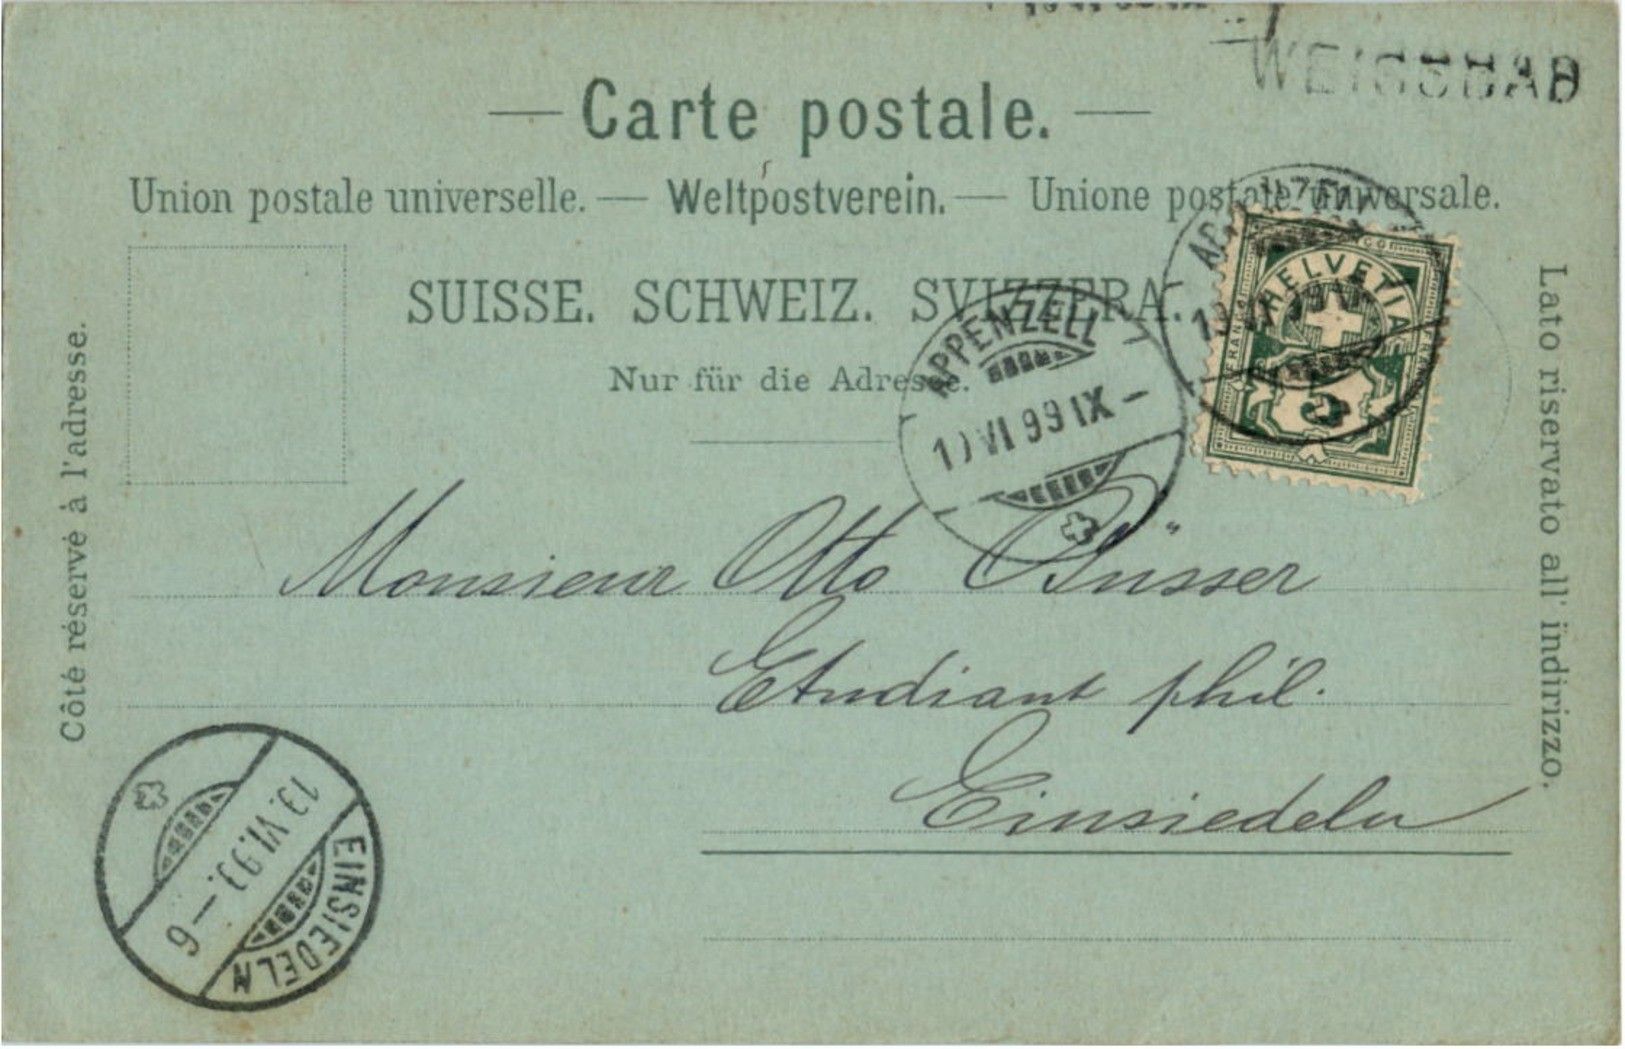 WEISSBAD
— Carte postale. —
Union postale universelle. — Weltpostverein. — Unione postale universale.
SUISSE. SCHWEIZ. SVIZZERA.
Nur für die Adresse.
Côté réservé à l'adresse.
Lato riservato all' indirizzo.
HELVETIA
FRANCO
APPENZELL
10 VI 99 IX –
Monsieur Otto Büsser
Etudiant phil.
Einsiedeln
EINSIEDELN